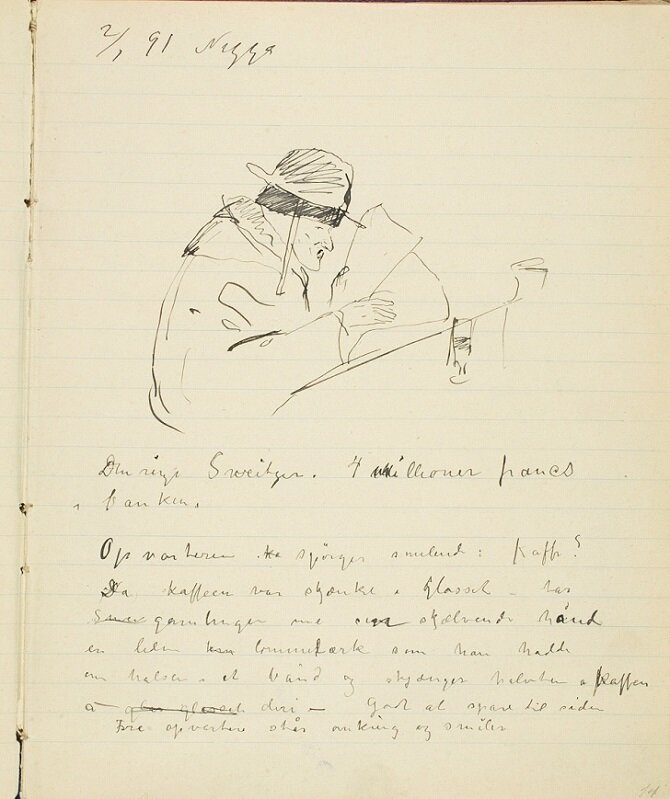 2/1 91 Nizza
Den rige Sweitzer. 4 millioner francs
i banken.
Opvarteren spørger smilende: Kaffe?
Da kaffeen var skjænket i Glasset – tar
gamlingen me sin skælvende hånd
en liden lommelærke som han hadde
om halsen i et bånd og skjænger helvten a kaffen
deri – Godt at spare til siden
Tre opvartere står omkring og smiler